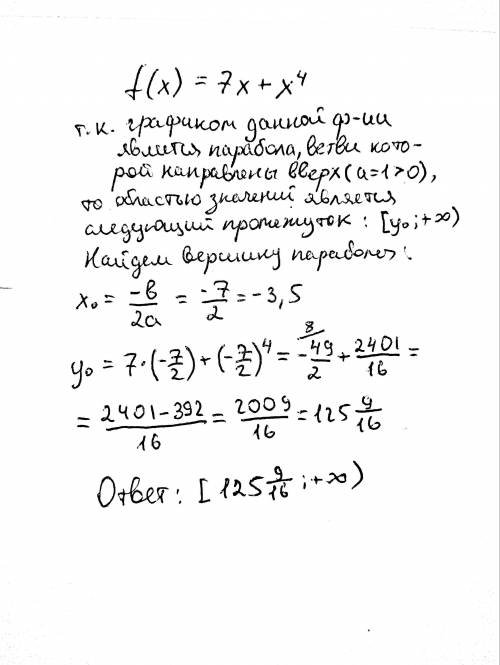 f(x) = 7x + x⁴
т.к. графиком данной ф-ии
является парабола, ветви кото-
рой направлены вверх (a=1>0),
то областью значений является
следующий промежуток: [y₀;+∞)
Найдем вершину параболы:
x₀ = -b/2a = -7/2 = -3,5
y₀ = 7·(-7/2)+(-7/2)⁴ = -49/2 ⁸/ + 2401/16 =
= 2401-392/16 = 2009/16 = 125 9/16
Ответ: [125 9/16 ;+∞)